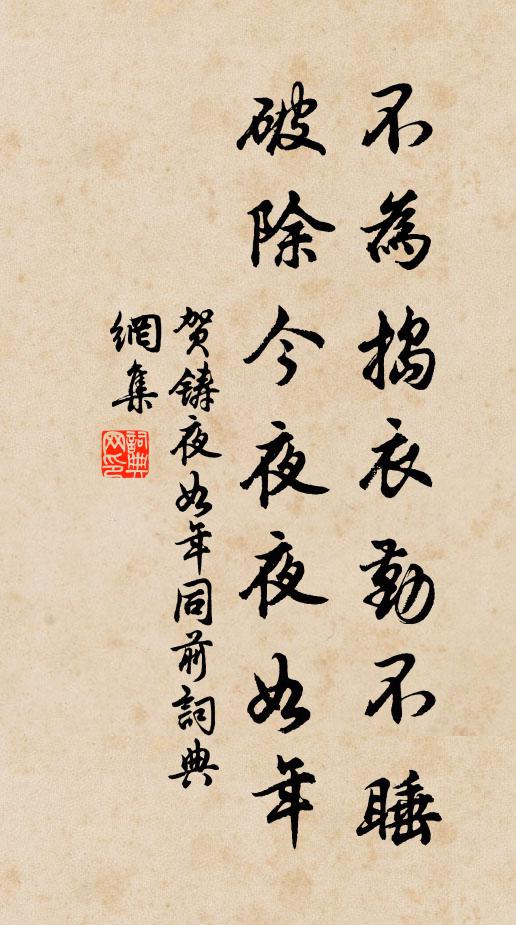 不為搗衣勤不睡
破除今夜夜如年
贺鑄夜如年同前詞典
網集
詞典
网印